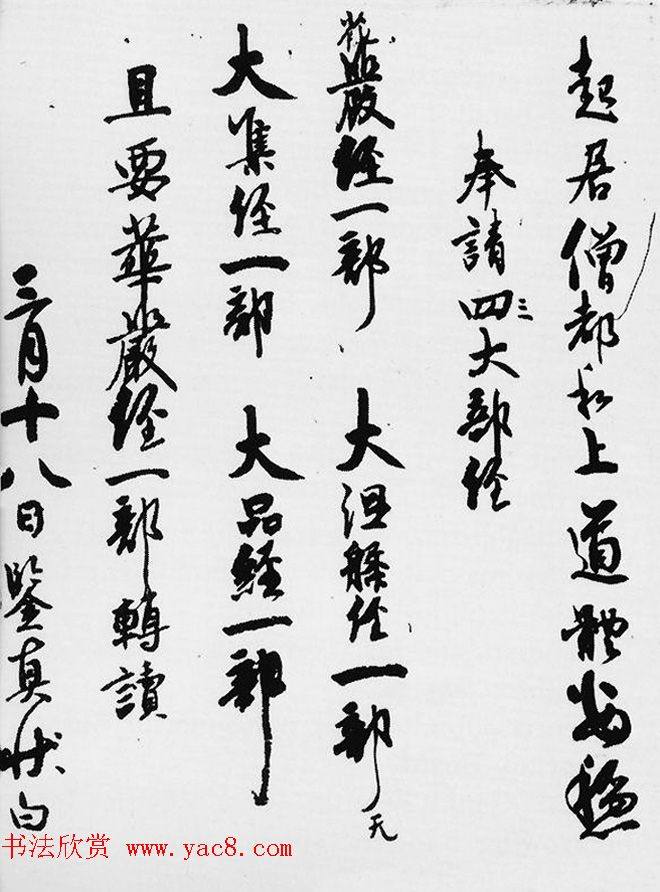 起居僧都和上道體安穩
奉請四大部経
三
花嚴経一部 大涅槃経一部
天
大集経一部 大品經一部
且要華嚴経一部轉讀
三月十八日鑒真状白
书法欣赏 www.yac8.com